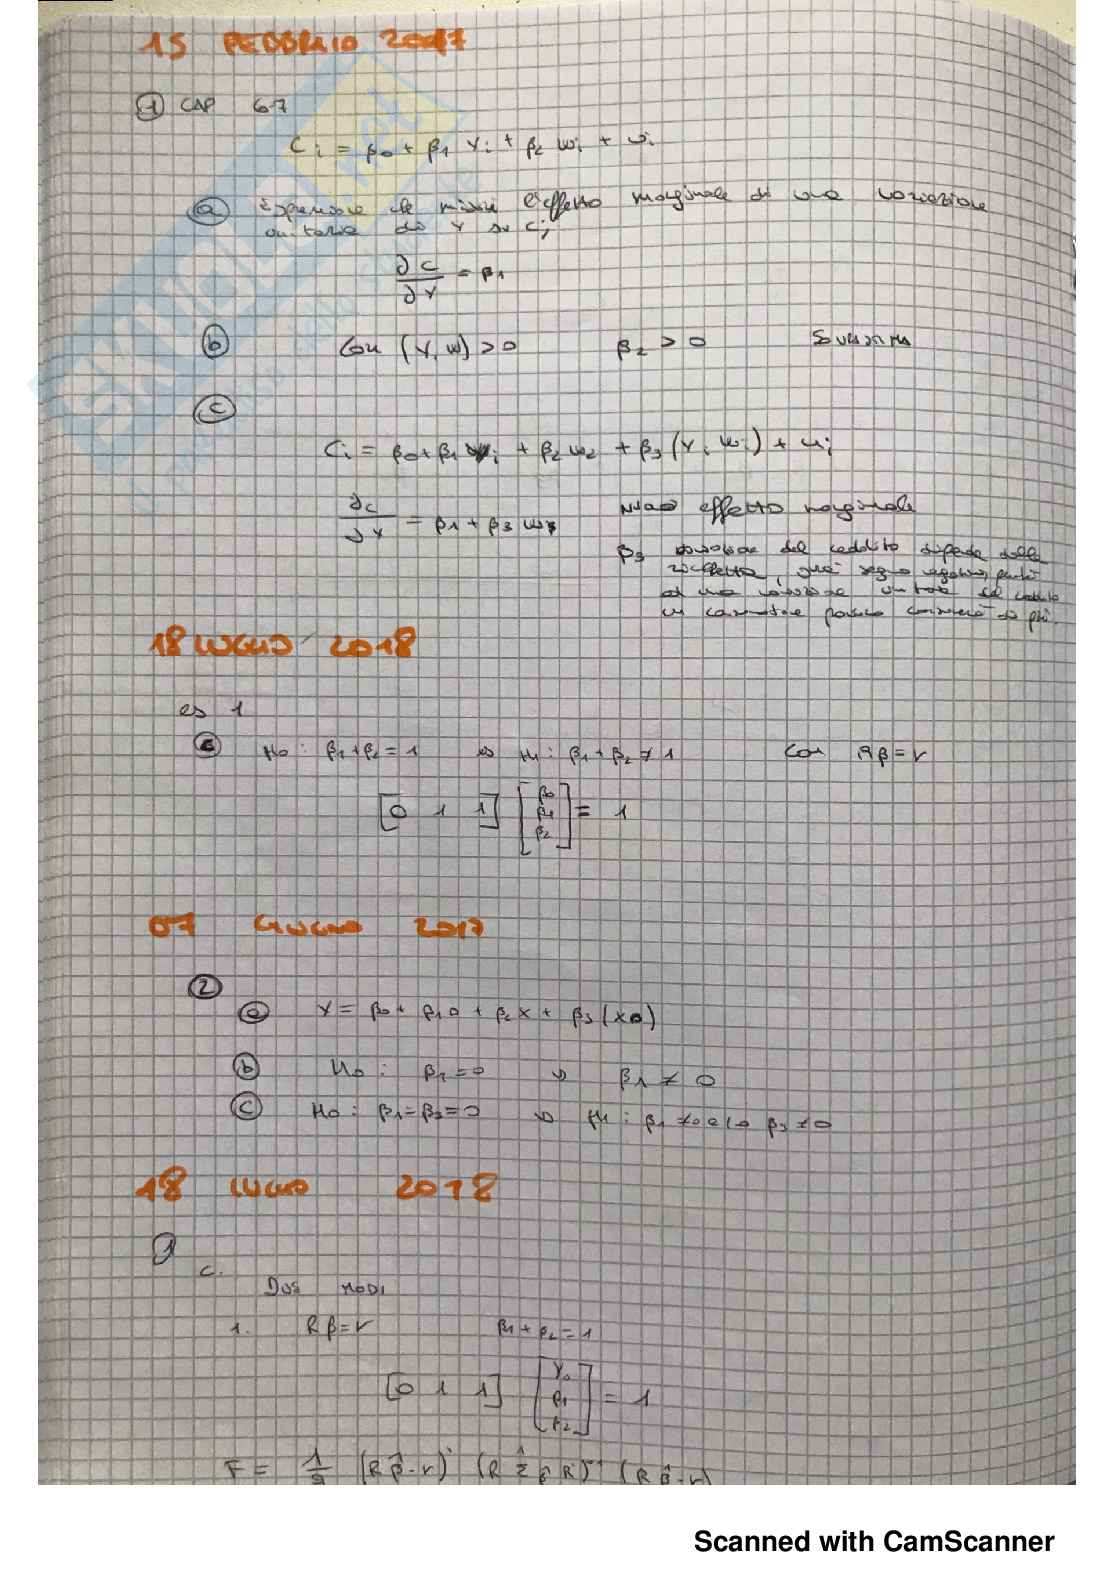 15 FEBBRAIO 2017
1 CAP 6-7
Ci = β0 + β1 Yi + β2 Wi + ui
a Espressione che misura l'effetto marginale di una variazione
unitaria di Y su Ci
∂C/∂Y = β1
b Cov (Y, W) > 0 β2 > 0 SOVRASTIMA
c
Ci = β0 + β1 Yi + β2 W2 + β3 (Yi Wi) + ui
∂C/∂Y = β1 + β3 Wi nuovo effetto marginale
β3 variazione del reddito dipende dalla
ricchezza, segno negativo, perché
ad una variazione unitaria del reddito
un consumatore povero consumerà di più.
18 LUGLIO 2018
es 1
c H0 : β1 + β2 = 1 vs H1 : β1 + β2 ≠ 1 Con Rβ = r
[0 1 1] [β0 β1 β2] = 1
07 GIUGNO 2017
2
a Y = β0 + β1 D + β2 X + β3 (XD)
b H0 : β1 = 0 vs β1 ≠ 0
c H0 : β1 = β3 = 0 vs H1 : β1 ≠ 0 e/o β3 ≠ 0
18 LUGLIO 2018
1
c. DUE MODI
1. Rβ = r β1 + β2 = 1
[0 1 1] [γ0 β1 β2] = 1
F = 1/q (Rβ̂ - r)' (R Σ̂β̂ R')⁻¹ (Rβ̂ - r)
SKUOLA.net
Scanned with CamScanner